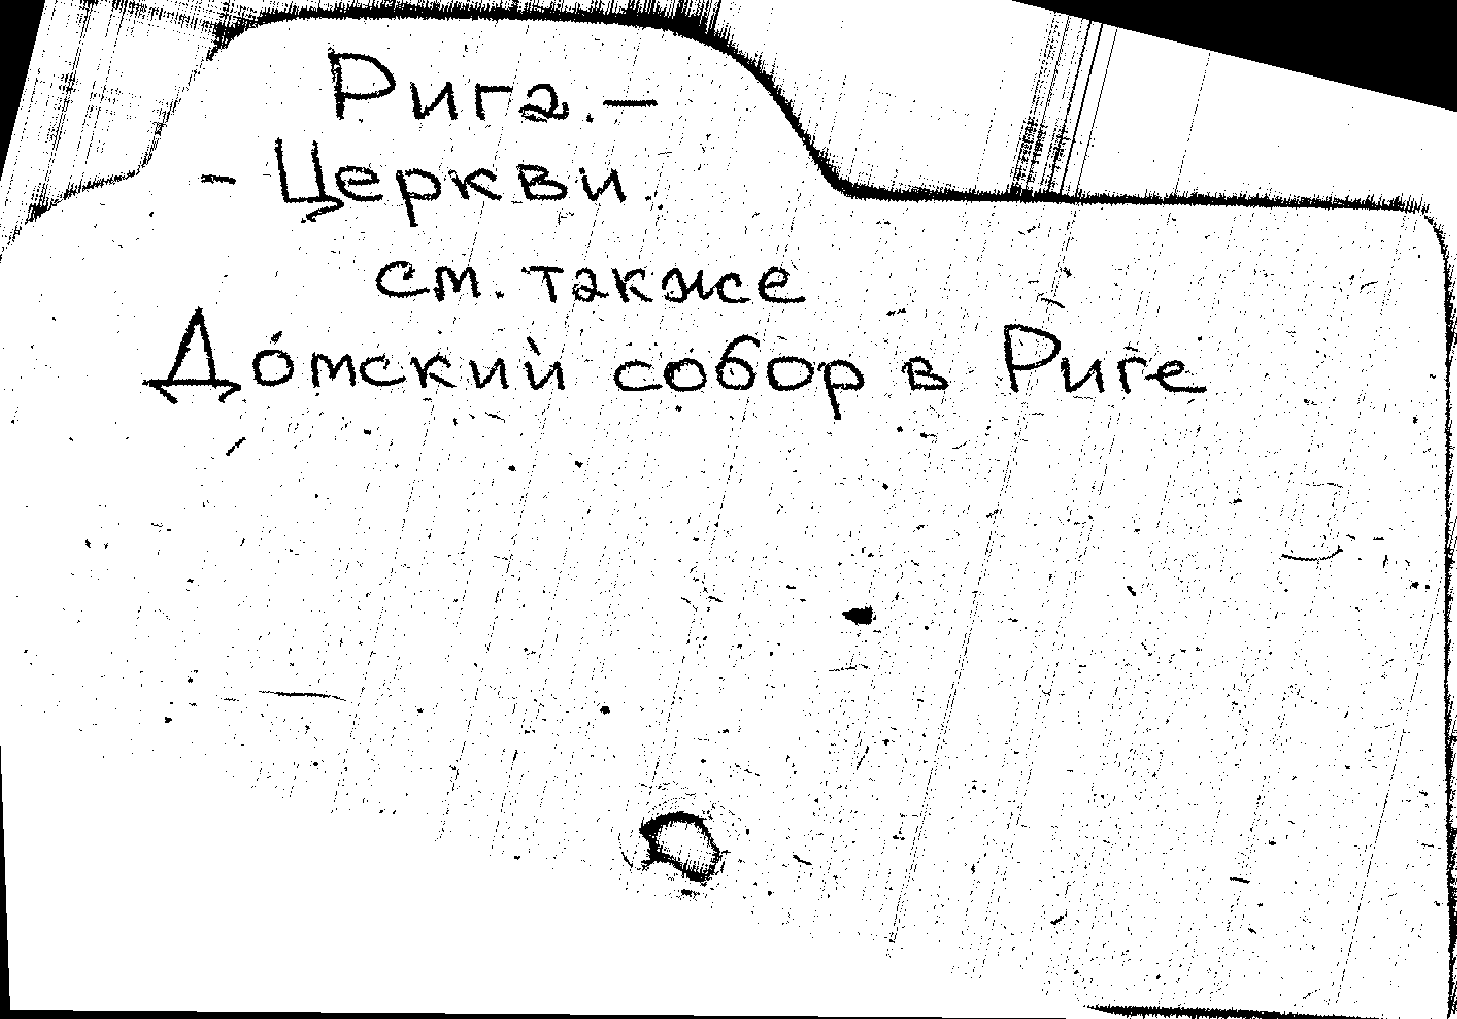 Рига. –
– Церкви.
см. также
До́мский собор в Риге